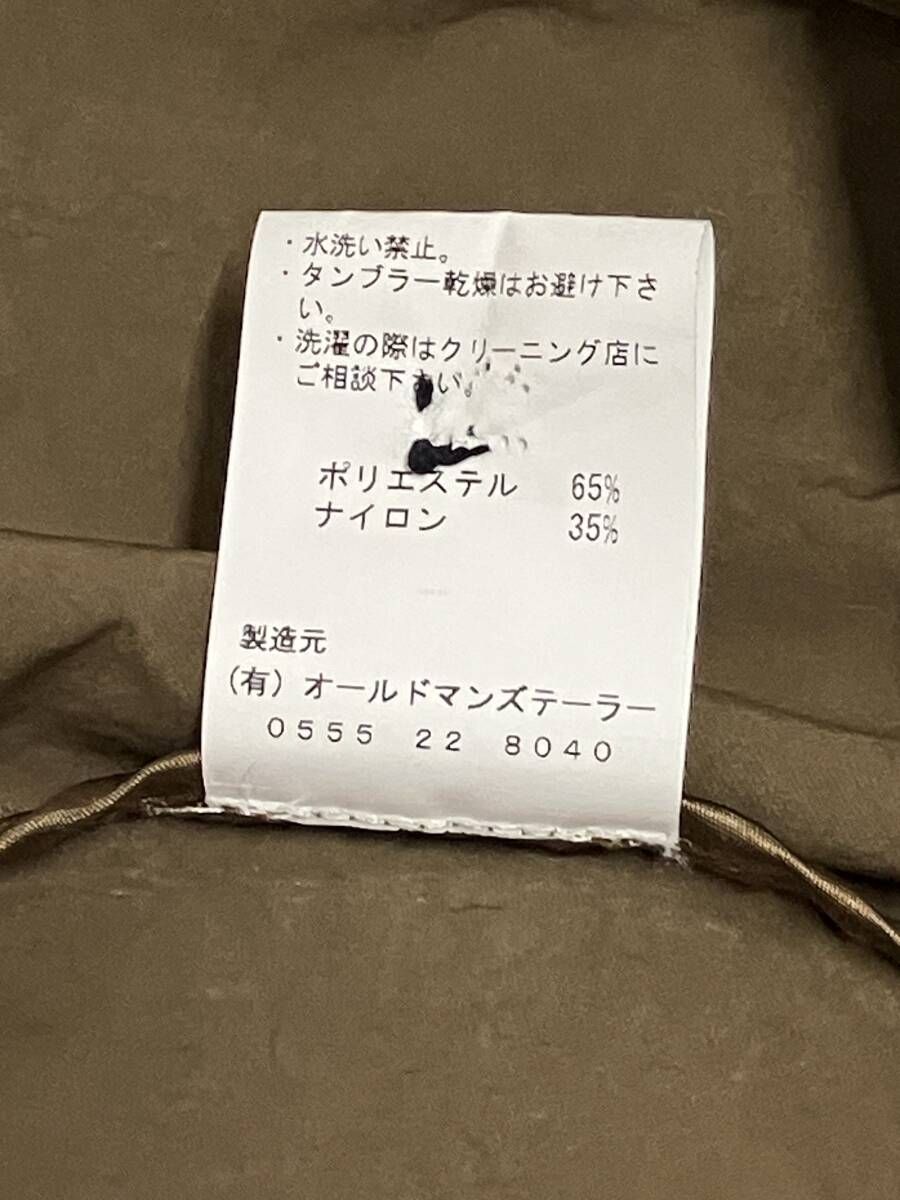 ・水洗い禁止。
・タンブラー乾燥はお避け下さ
い。
・洗濯の際はクリーニング店に
ご相談下さい。
ポリエステル 65%
ナイロン 35%
製造元
(有)オールドマンズテーラー
0555 22 8040